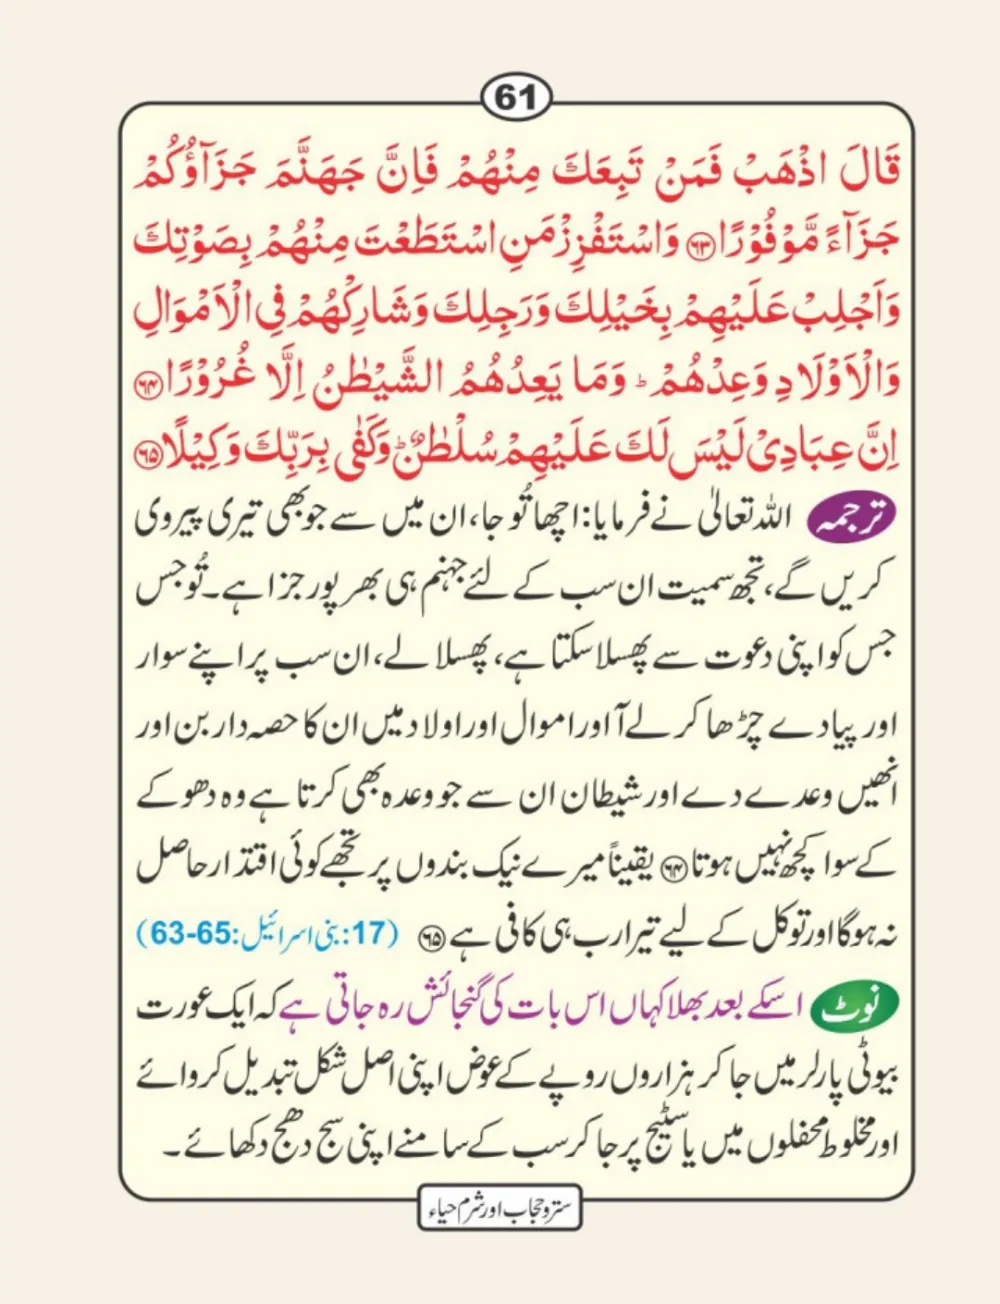 61
قَالَ اذْهَبْ فَمَنْ تَبِعَكَ مِنْهُمْ فَاِنَّ جَهَنَّمَ جَزَآؤُكُمْ
جَزَآءً مَّوْفُوْرًا ﴿۶۳﴾ وَاسْتَفْزِزْ مَنِ اسْتَطَعْتَ مِنْهُمْ بِصَوْتِكَ
وَاَجْلِبْ عَلَيْهِمْ بِخَيْلِكَ وَرَجِلِكَ وَشَارِكْهُمْ فِى الْاَمْوَالِ
وَالْاَوْلَادِ وَعِدْهُمْ ؕ وَمَا يَعِدُهُمُ الشَّيْطٰنُ اِلَّا غُرُوْرًا ﴿۶۴﴾
اِنَّ عِبَادِىْ لَيْسَ لَكَ عَلَيْهِمْ سُلْطٰنٌ ؕ وَكَفٰى بِرَبِّكَ وَكِيْلًا ﴿۶۵﴾
ترجمہ اللہ تعالیٰ نے فرمایا: اچھا تُو جا، ان میں سے جو بھی تیری پیروی
کریں گے، تجھ سمیت ان سب کے لئے جہنم ہی بھرپور جزا ہے۔ تُو جس
جس کو اپنی دعوت سے پھسلا سکتا ہے، پھسلا لے، ان سب پر اپنے سوار
اور پیادے چڑھا کر لے آ اور اموال اور اولاد میں ان کا حصہ دار بن اور
انھیں وعدے دے اور شیطان ان سے جو وعدہ بھی کرتا ہے وہ دھوکے
کے سوا کچھ نہیں ہوتا ﴿۶۴﴾ یقیناً میرے نیک بندوں پر تجھے کوئی اقتدار حاصل
نہ ہوگا اور توکل کے لیے تیرا رب ہی کافی ہے ﴿۶۵﴾ (17: بنی اسرائیل: 65-63)
نوٹ اسکے بعد بھلا کہاں اس بات کی گنجائش رہ جاتی ہے کہ ایک عورت
بیوٹی پارلر میں جا کر ہزاروں روپے کے عوض اپنی اصل شکل تبدیل کروائے
اور مخلوط محفلوں میں یا سٹیج پر جا کر سب کے سامنے اپنی سج دھج دکھائے۔
ستر و حجاب اور شرم حیاء